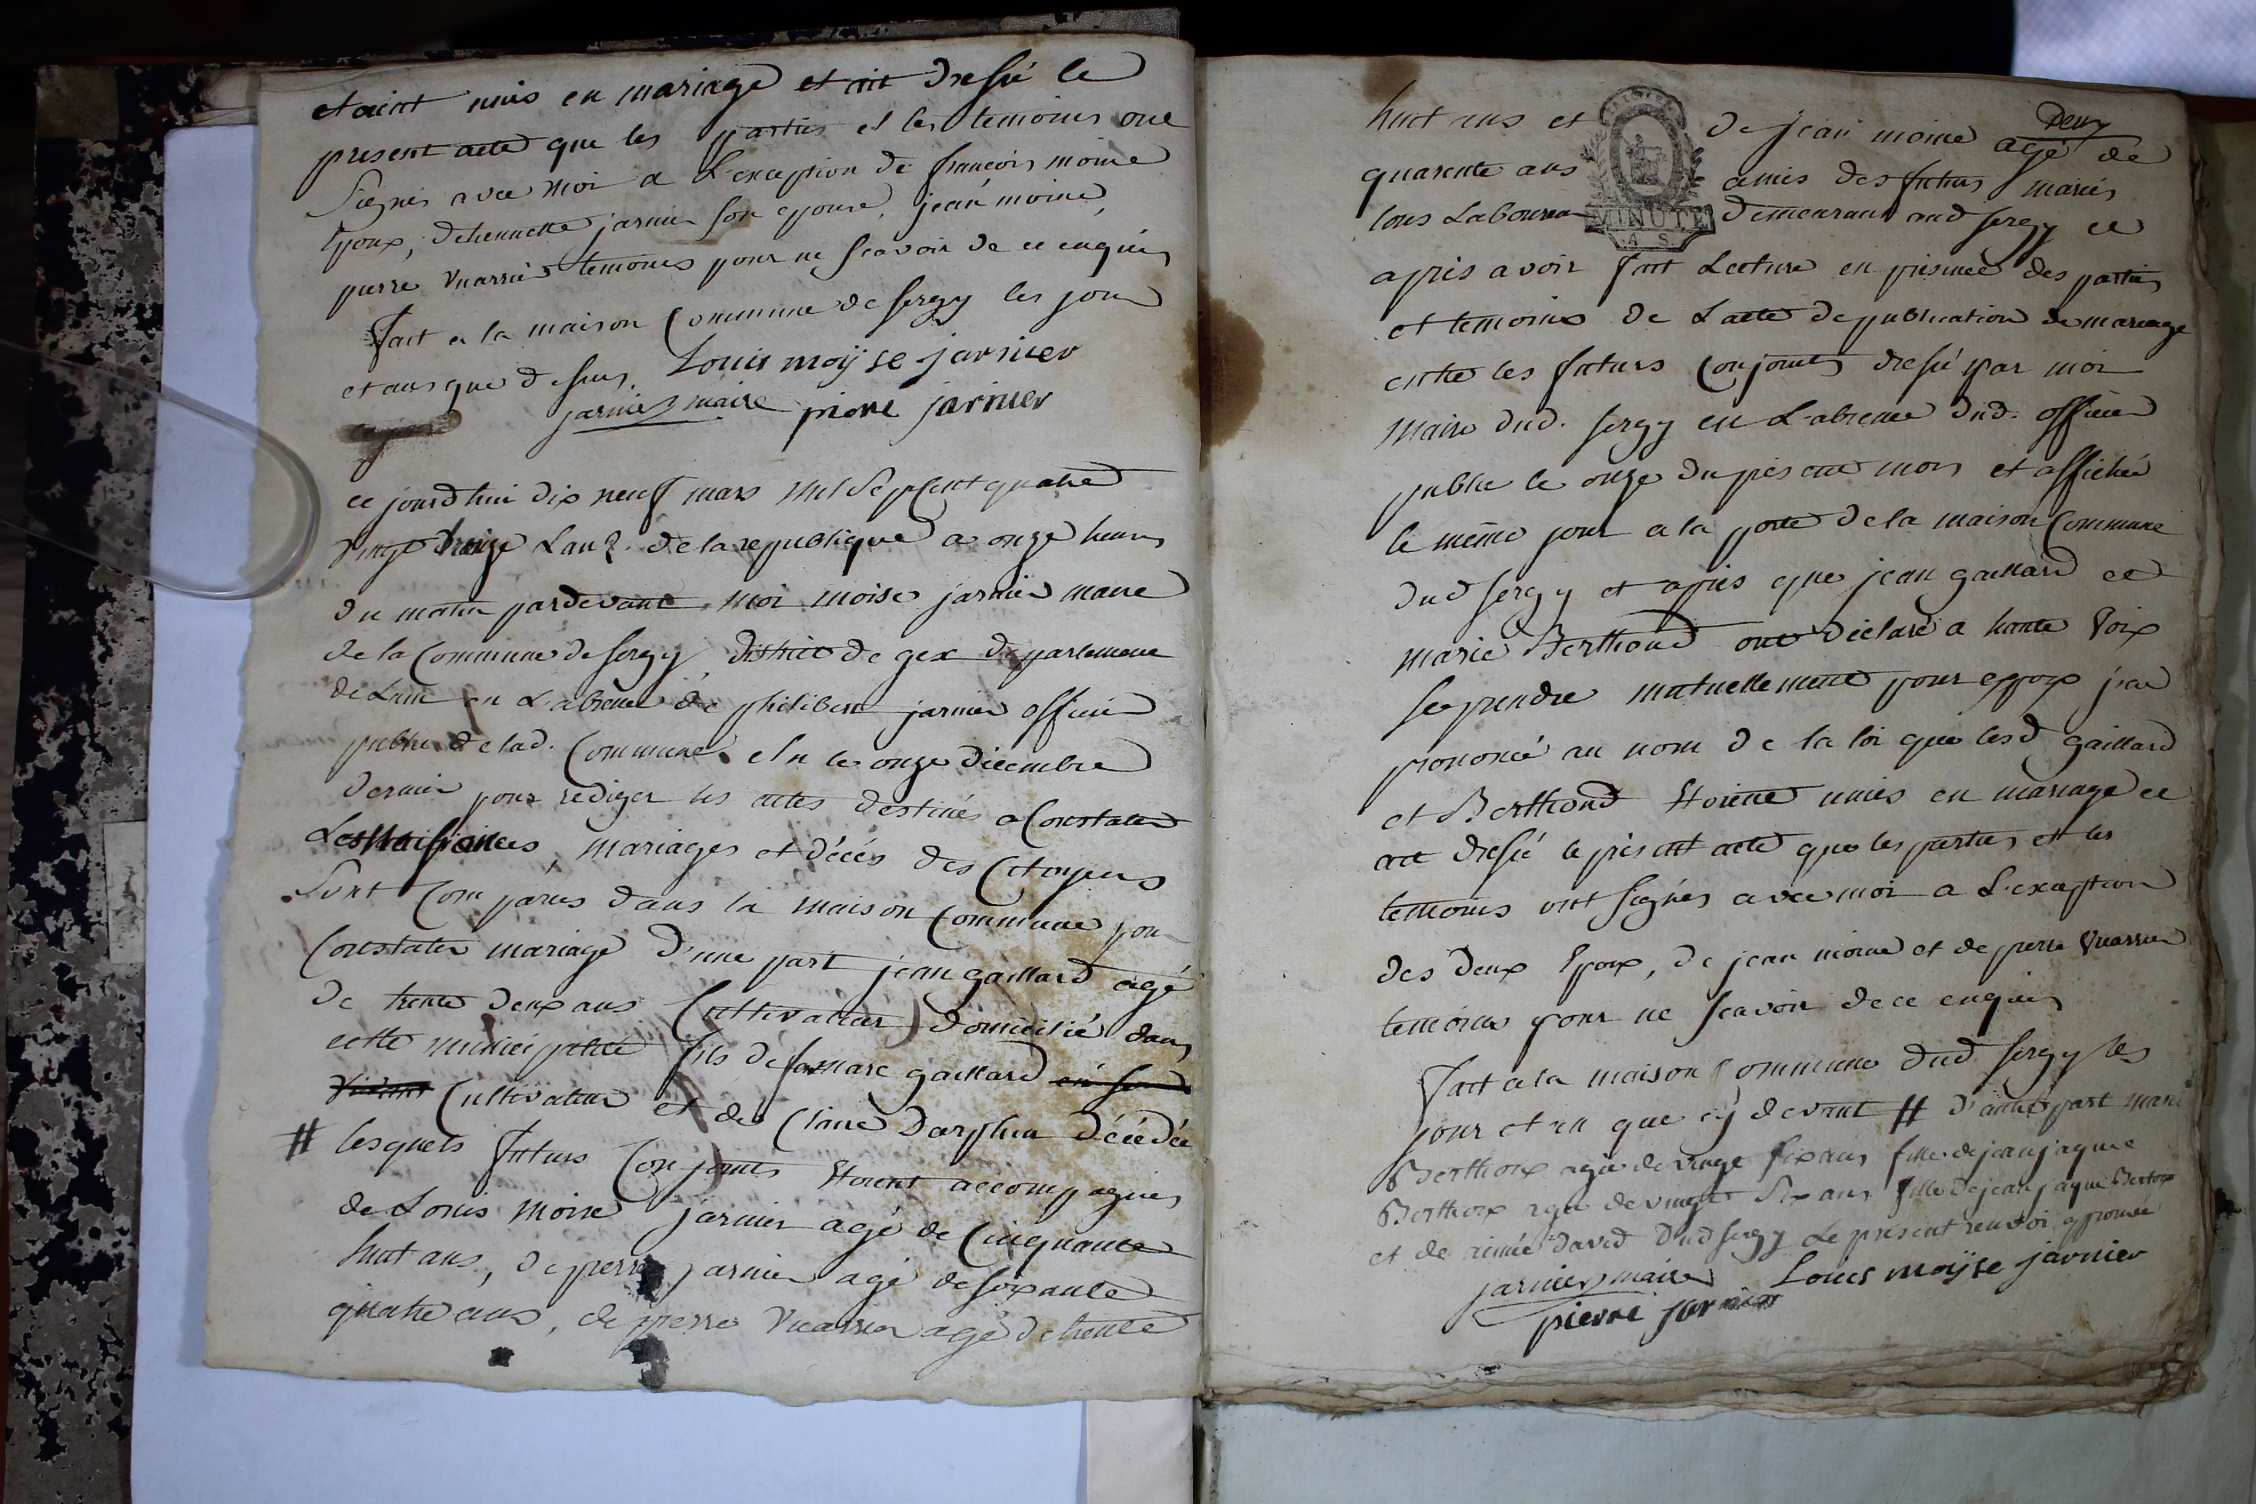 etaint unis en mariage et ait dressé le
present acte que les parties et les temoins ont
Signés avec moi a L'exception de francois moine
Epoux, detiennette jarnier son epouse, jean moine,
pierre Vuarrier temoins pour ne scavoir de ce enquis
Fait a la maison Commune de sergy les jour
et ans que dessus. Louis moÿse jarnier
jarnier maire pierre jarnier
ce jourd'hui dix neuf mars mil Sept Cent quatre
vingt treize Lan 2. de la republique a onze heures
du matin pardevant moi moise jarnier maire
de la Commune de sergy district de gex departement
de Lain en L'absence de philibert jarnier officier
public de lad. Commune elu le onze décembre
dernier pour rediger les actes destinés a Constater
Les Naissances, mariages et décés des Citoyens
Sont Comparus dans la maison Commune pour
Constater mariage d'une part jean gaillard agé
de trente deux ans Cultivateur domicilié dans
cette municipalité fils de marc gaillard
vivant Cultivateur et de Claire Darphin décédée
# lesquels futurs Conjoints etoient accompagnés
de Louis Moise jarnier agé de Cinquante
huit ans, de pierre jarnier agé de soixante
quatre ans, de pierre Vuarrier agé de trente
deux
huit ans et de jean moine agé de
quarente ans amis des futurs mariés
tous Laboureur demeurant aud sergy et
MINUTE
apres avoir fait Lecture en presence des parties
et temoins de L'acte de publication de mariage
entre les futurs Conjoints dressé par moi
maire dud. sergy en L'absence dud. officier
public le onze du present mois et affiché
le même jour a la porte de la maison Commune
dud sergy et apres que jean gaillard et
marie Berthoud ont déclaré a haute Voix
se prendre mutuellement pour epoux j'ai
prononcé au nom de la loi que lesd gaillard
et Berthoud etoient unies en mariage et
ait dressé le present acte que les parties et les
temoins ont signés avec moi a L'exception
des deux Epoux, de jean moine et de pierre Vuarrier
temoins pour ne scavoir de ce enquis
Fait a la maison Commune dud sergy les
jour et an que cÿ devant # d'autre part marie
Berthoux agée de vingt six ans fille de jean jaque
Berthoux agée de vingt Six ans fille de jean jaque Bertoux
et de aimée David Dud sergy Le présent renvoi approuvé
jarnier maire Louis moÿse jarnier
pierre jarnier